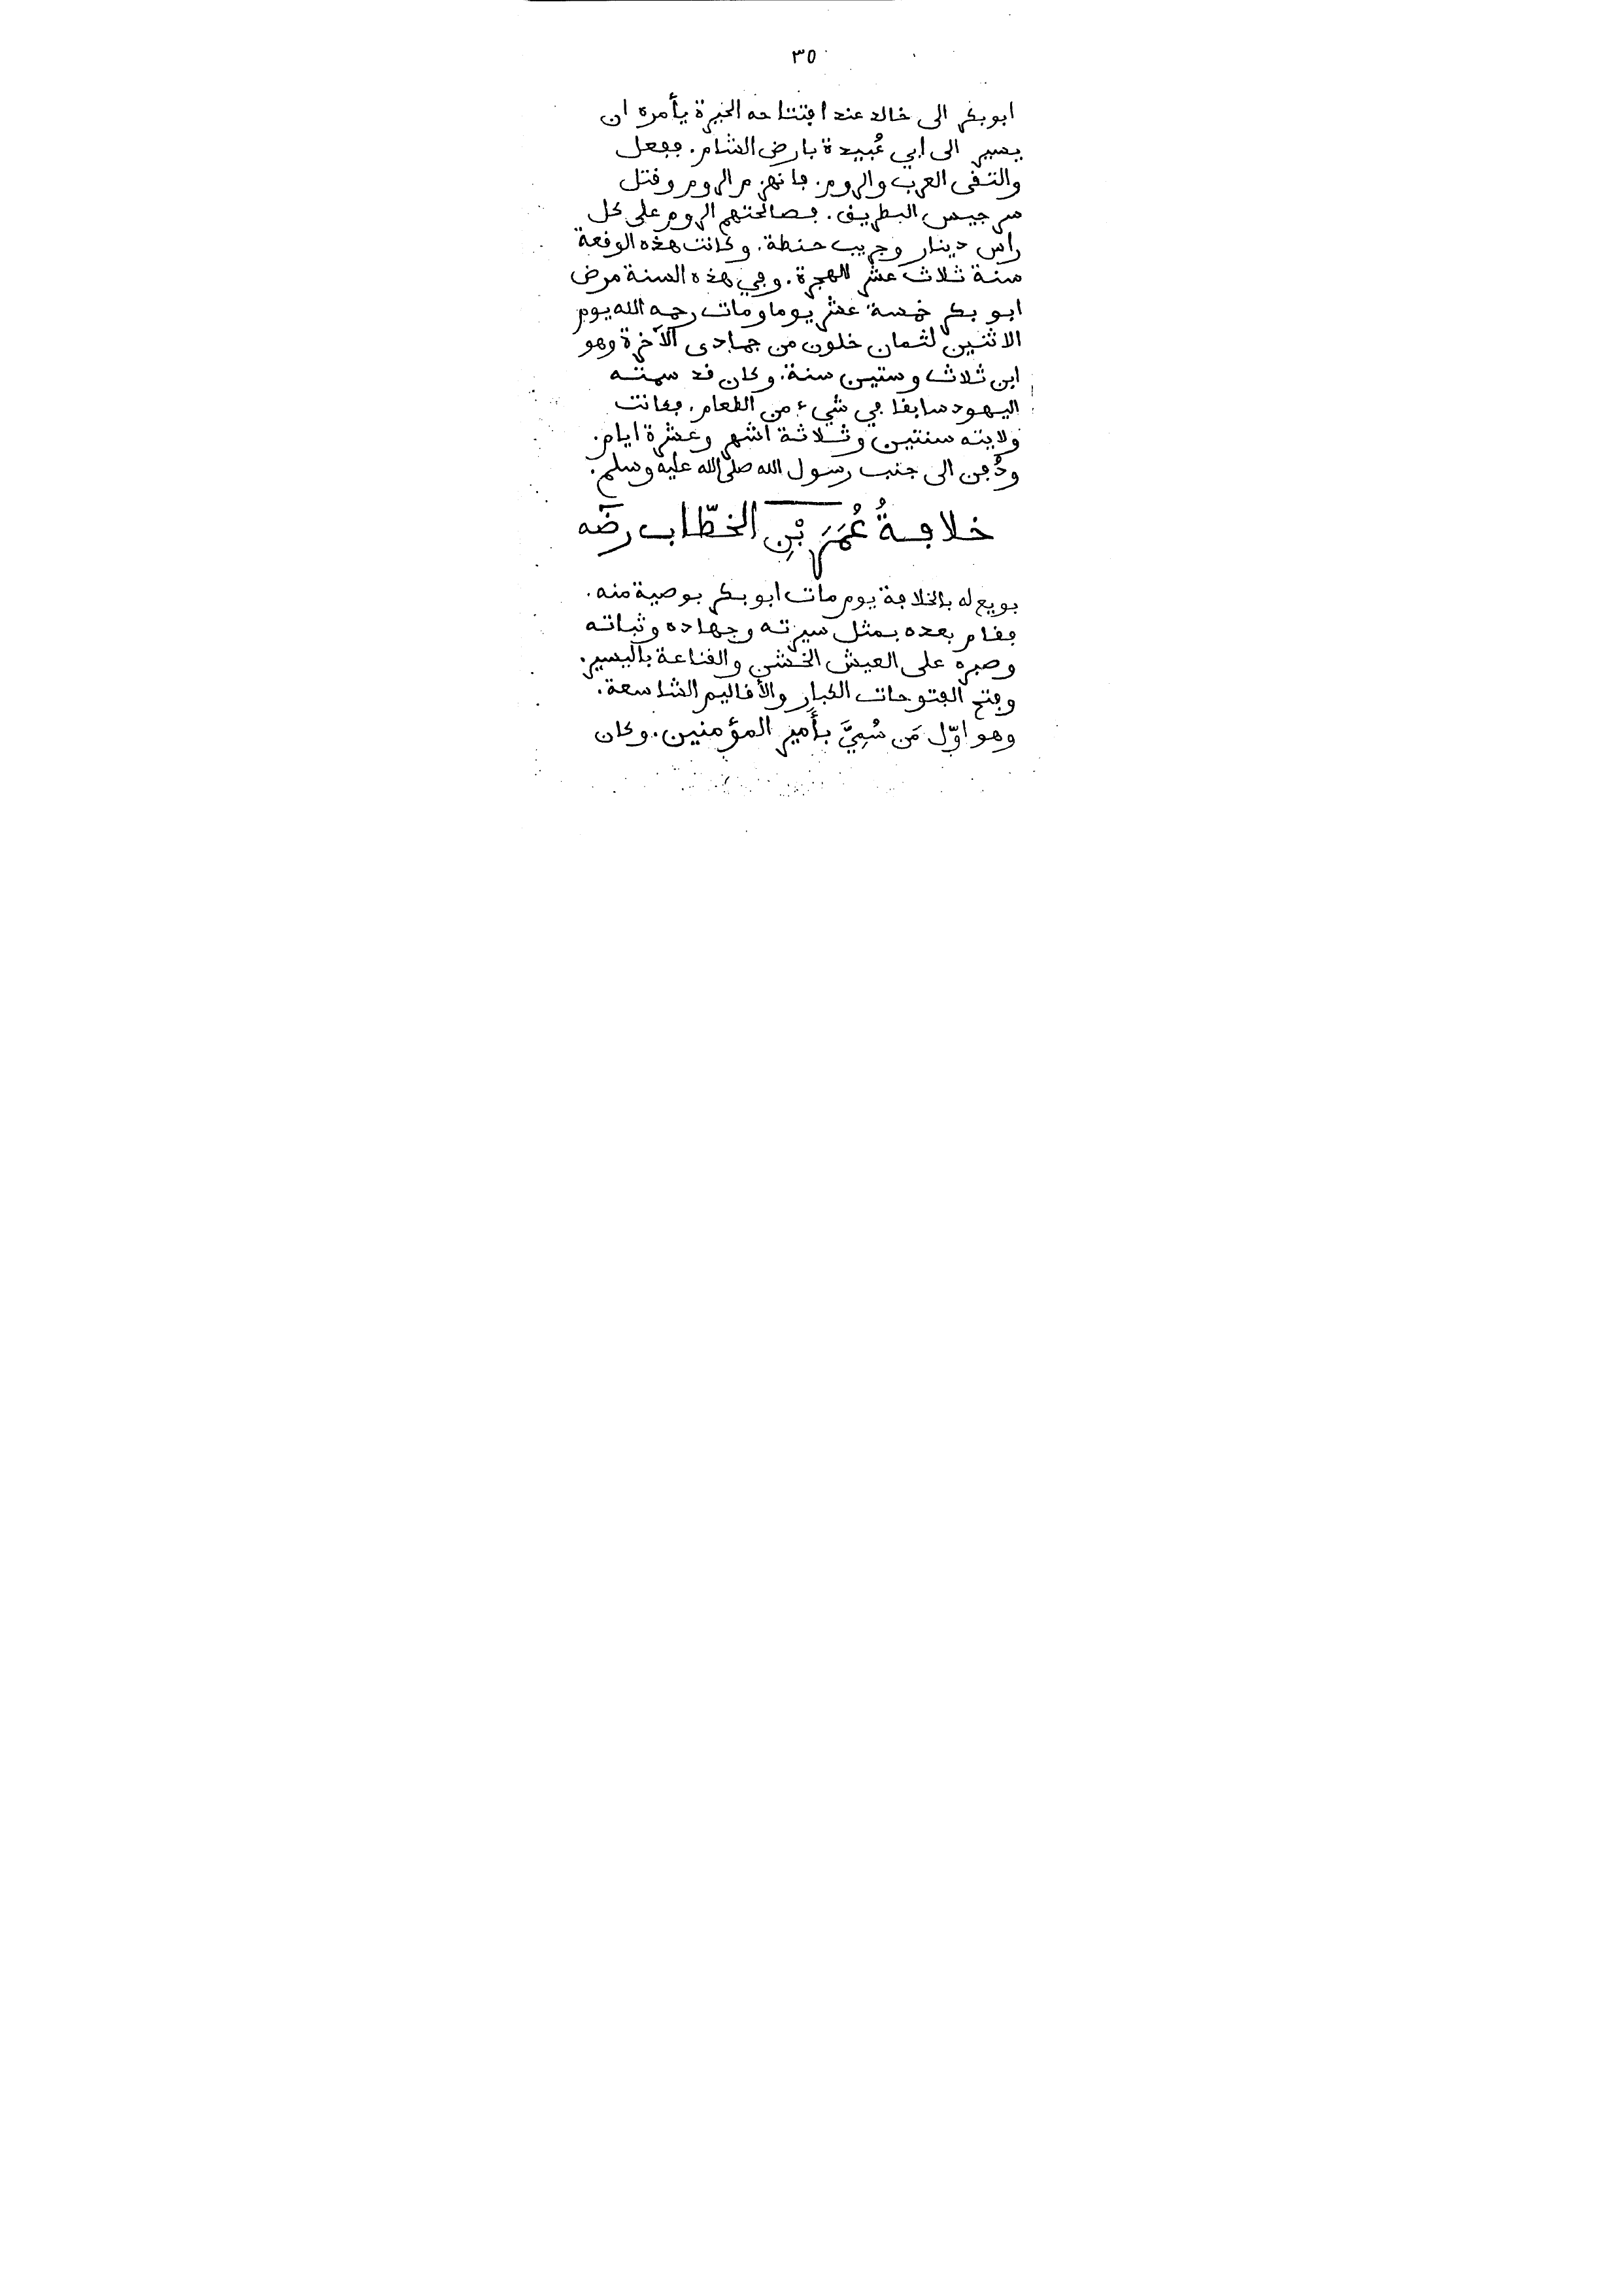 ٣٥
ابو بكر الى خالد عند افتتاحه الحيرة يأمره ان
يسير الى ابي عُبيدة بارض الشام. ففعل
والتقى العرب والروم. فانهزم الروم وقتل
سرجيس البطريق. فصالحتهم الروم على كل
راس دينار وجريب حنطة. وكانت هذه الوقعة
سنة ثلاث عشر للهجرة. وفي هذه السنة مرض
ابو بكر خمسة عشر يوما ومات رحمه الله يوم
الاثنين لثمان خلون من جمادى الآخرة وهو
ابن ثلاث وستين سنة. وكان قد سمته
اليهود سابقا في شيء من الطعام. فكانت
ولايته سنتين وثلاثة اشهر وعشرة ايام.
ودُفن الى جنب رسول الله صلى الله عليه وسلم.
خلافةُ عُمَرَ بْنِ الخطّاب رضه
بويع له بالخلافة يوم مات ابو بكر بوصية منه.
فقام بعده بمثل سيرته وجهاده وثباته
وصبره على العيش الخشن والقناعة باليسير.
وفتح الفتوحات الكبار والأقاليم الشاسعة.
وهو اوّل مَن سُمِيَّ بأمير المؤمنين. وكان